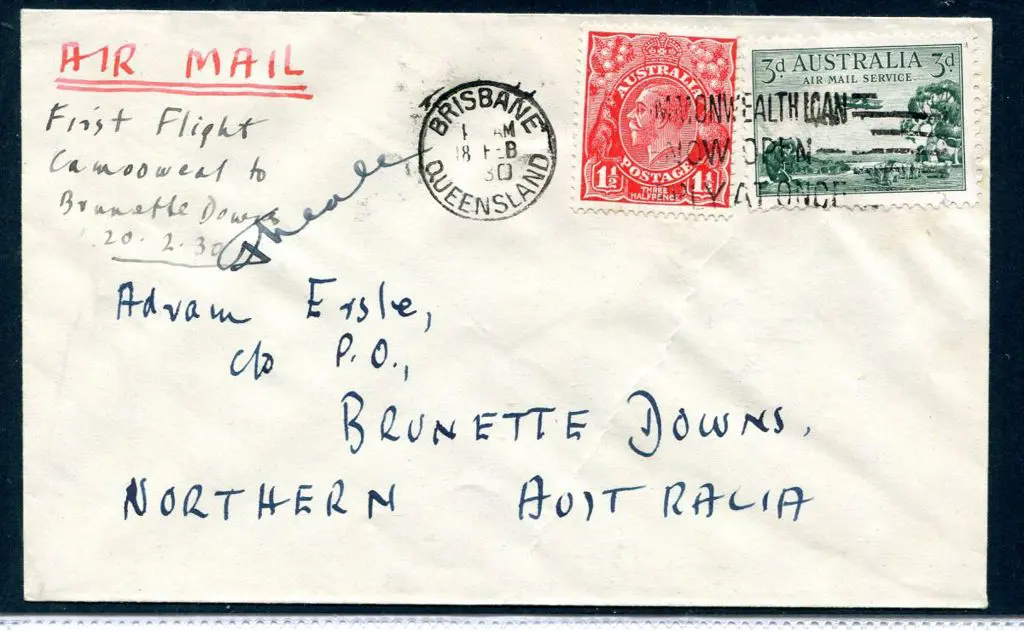 AIR MAIL
First Flight
Camooweal to
Brunette Downs
20. 2. 30
BRISBANE
AM
18 FEB
30
QUEENSLAND
AUSTRALIA
POSTAGE
1½ THREE HALFPENCE 1½
3d AUSTRALIA 3d
AIR MAIL SERVICE
MMONWEALTH LOAN
NOW OPEN
AT ONCE
Advam Ersle,
c/o P.O.,
BRUNETTE DOWNS,
NORTHERN AUSTRALIA